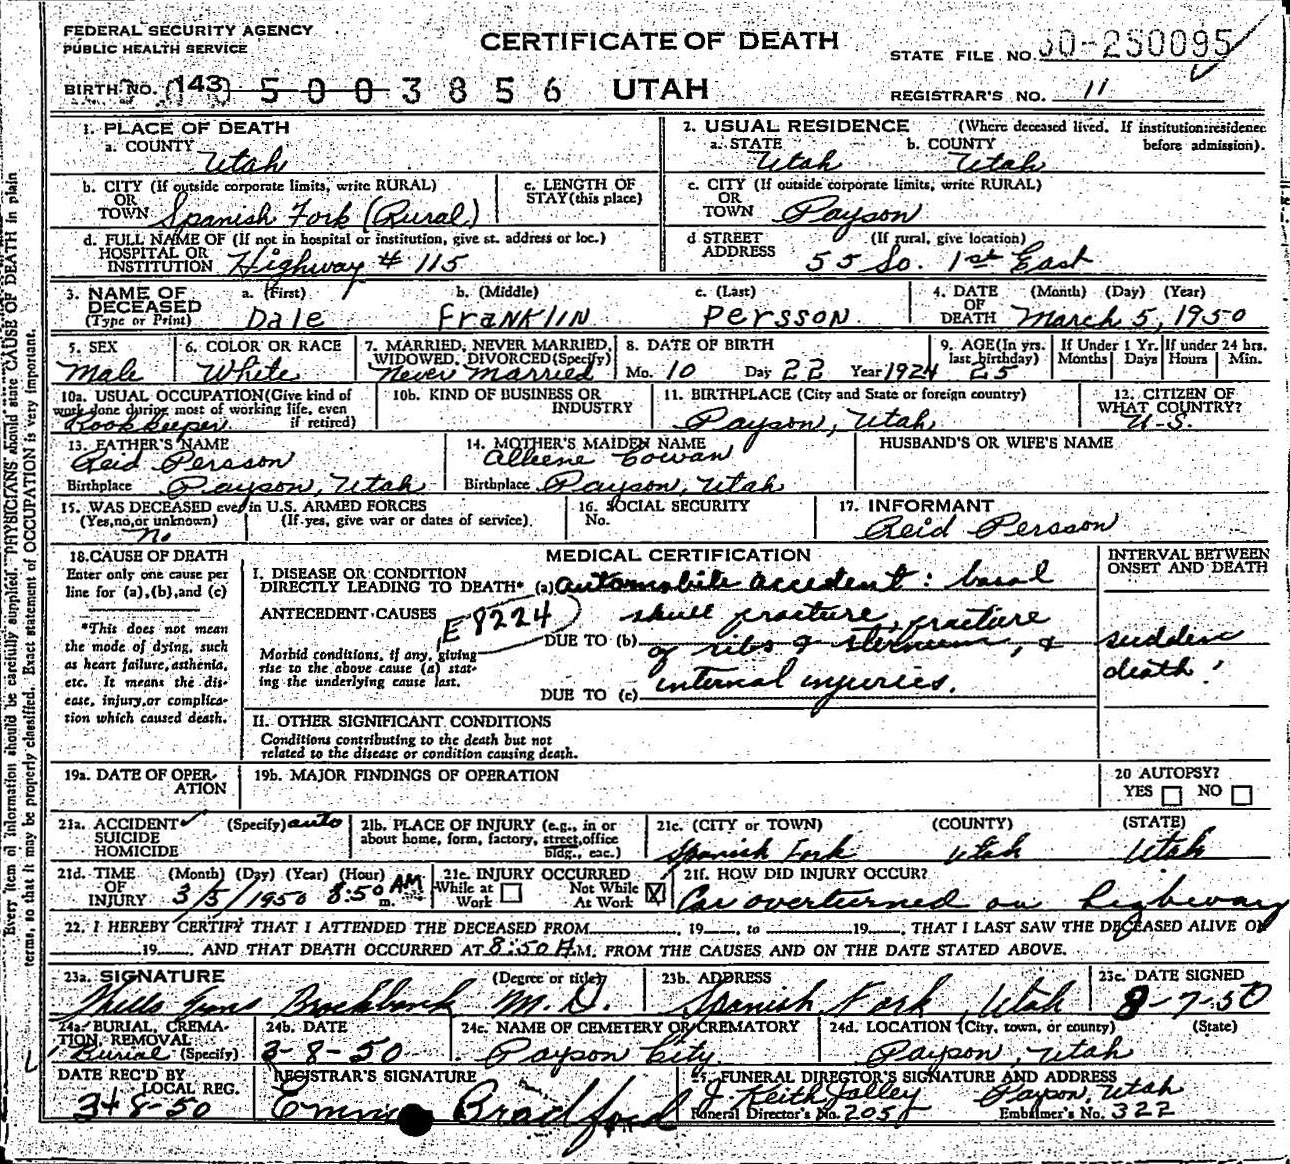 FEDERAL SECURITY AGENCY
PUBLIC HEALTH SERVICE
CERTIFICATE OF DEATH
STATE FILE NO. 50-250095
BIRTH NO. (143) 5003856 UTAH
REGISTRAR'S NO. 11
1. PLACE OF DEATH
a. COUNTY Utah
2. USUAL RESIDENCE (Where deceased lived. If institution:residence before admission).
a. STATE Utah b. COUNTY Utah
b. CITY (If outside corporate limits, write RURAL) OR TOWN Spanish Fork (Rural)
c. LENGTH OF STAY (this place)
c. CITY (If outside corporate limits, write RURAL) OR TOWN Payson
d. FULL NAME OF (If not in hospital or institution, give st. address or loc.) HOSPITAL OR INSTITUTION Highway # 115
d STREET ADDRESS (If rural, give location) 55 So. 1st East
3. NAME OF DECEASED (Type or Print) a. (First) Dale b. (Middle) Franklin c. (Last) Persson
4. DATE OF DEATH (Month) (Day) (Year) March 5, 1950
5. SEX Male
6. COLOR OR RACE White
7. MARRIED, NEVER MARRIED, WIDOWED, DIVORCED (Specify) Never Married
8. DATE OF BIRTH Mo. 10 Day 22 Year 1924
9. AGE (In yrs. last birthday) 25
If Under 1 Yr. Months Days
If under 24 hrs. Hours Min.
10a. USUAL OCCUPATION (Give kind of work done during most of working life, even if retired) Bookkeeper
10b. KIND OF BUSINESS OR INDUSTRY
11. BIRTHPLACE (City and State or foreign country) Payson, Utah
12. CITIZEN OF WHAT COUNTRY? U-S.
13. FATHER'S NAME Reid Persson
Birthplace Payson, Utah
14. MOTHER'S MAIDEN NAME Alleene Cowan
Birthplace Payson, Utah
HUSBAND'S OR WIFE'S NAME
15. WAS DECEASED ever in U.S. ARMED FORCES (Yes, no, or unknown) (If yes, give war or dates of service). No
16. SOCIAL SECURITY No.
17. INFORMANT Reid Persson
18. CAUSE OF DEATH
Enter only one cause per line for (a), (b), and (c)
*This does not mean the mode of dying, such as heart failure, asthenia, etc. It means the disease, injury, or complication which caused death.
MEDICAL CERTIFICATION
INTERVAL BETWEEN ONSET AND DEATH
I. DISEASE OR CONDITION DIRECTLY LEADING TO DEATH* (a) automobile accident: basal
ANTECEDENT CAUSES E8224 skull fracture, fracture
Morbid conditions, if any, giving rise to the above cause (a) stating the underlying cause last.
DUE TO (b) of ribs & sternum, &
DUE TO (c) internal injuries.
sudden death!
II. OTHER SIGNIFICANT CONDITIONS
Conditions contributing to the death but not related to the disease or condition causing death.
19a. DATE OF OPERATION
19b. MAJOR FINDINGS OF OPERATION
20 AUTOPSY? YES NO
21a. ACCIDENT ✓ SUICIDE HOMICIDE (Specify) auto
21b. PLACE OF INJURY (e.g., in or about home, form, factory, street, office bldg., eac.)
21c. (CITY or TOWN) Spanish Fork (COUNTY) Utah (STATE) Utah
21d. TIME OF INJURY (Month) (Day) (Year) (Hour) 3/5/1950 8:50 AM m.
21e. INJURY OCCURRED While at Work Not While At Work X
21f. HOW DID INJURY OCCUR? Car overturned on highway
22. I HEREBY CERTIFY THAT I ATTENDED THE DECEASED FROM 19, to 19, THAT I LAST SAW THE DECEASED ALIVE ON
19, AND THAT DEATH OCCURRED AT 8:50 A.M. FROM THE CAUSES AND ON THE DATE STATED ABOVE.
23a. SIGNATURE Brockbank (Degree or title) M.D.
23b. ADDRESS Spanish Fork, Utah
23c. DATE SIGNED 8-7-50
24a. BURIAL, CREMATION, REMOVAL (Specify) Burial
24b. DATE 3-8-50
24c. NAME OF CEMETERY OR CREMATORY Payson City
24d. LOCATION (City, town, or county) (State) Payson, Utah
DATE REC'D BY LOCAL REG. 3-8-50
REGISTRAR'S SIGNATURE Emma Bradford
25. FUNERAL DIRECTOR'S SIGNATURE AND ADDRESS J. Keith Jolley Payson, Utah
Funeral Director's No. 205 Embalmer's No. 322
Every item of information should be carefully supplied. PHYSICIANS should state CAUSE OF DEATH in plain
terms, so that it may be properly classified. Exact statement of OCCUPATION is very important.